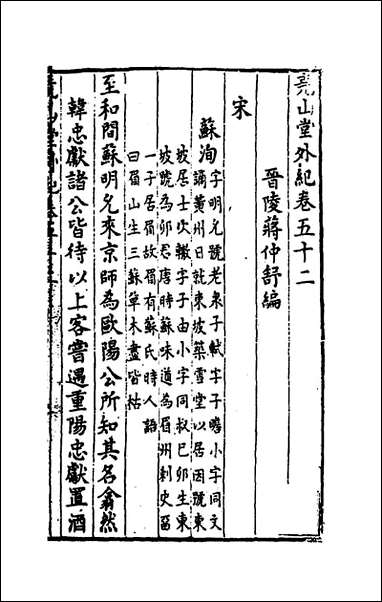 堯山堂外紀卷五十二
晉陵蔣仲舒編
宋
蘇洵 字明允號老泉子軾字子瞻小字同文
謫黃州日就東坡築雪堂以居因號東
坡居士次轍字子由小字同叔已卯生東
坡號為卯君唐時蘇味道為眉州刺史留
一子居眉故眉有蘇氏時人語
曰眉山生三蘇草木盡皆枯
至和間蘇明允來京師為歐陽公所知其名翕然
韓忠獻諸公皆待以上客嘗遇重陽忠獻置酒